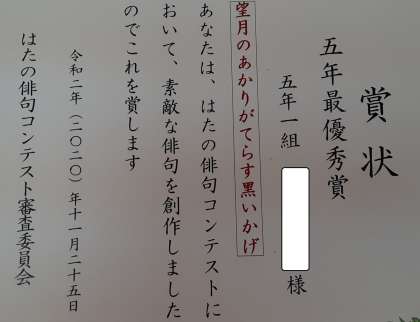 賞状
五年最優秀賞
五年一組 様
望月のあかりがてらす黒いかげ
あなたは、はたの俳句コンテストに
おいて、素敵な俳句を創作しました
のでこれを賞します
令和二年（二〇二〇）年十一月二十五日
はたの俳句コンテスト審査委員会